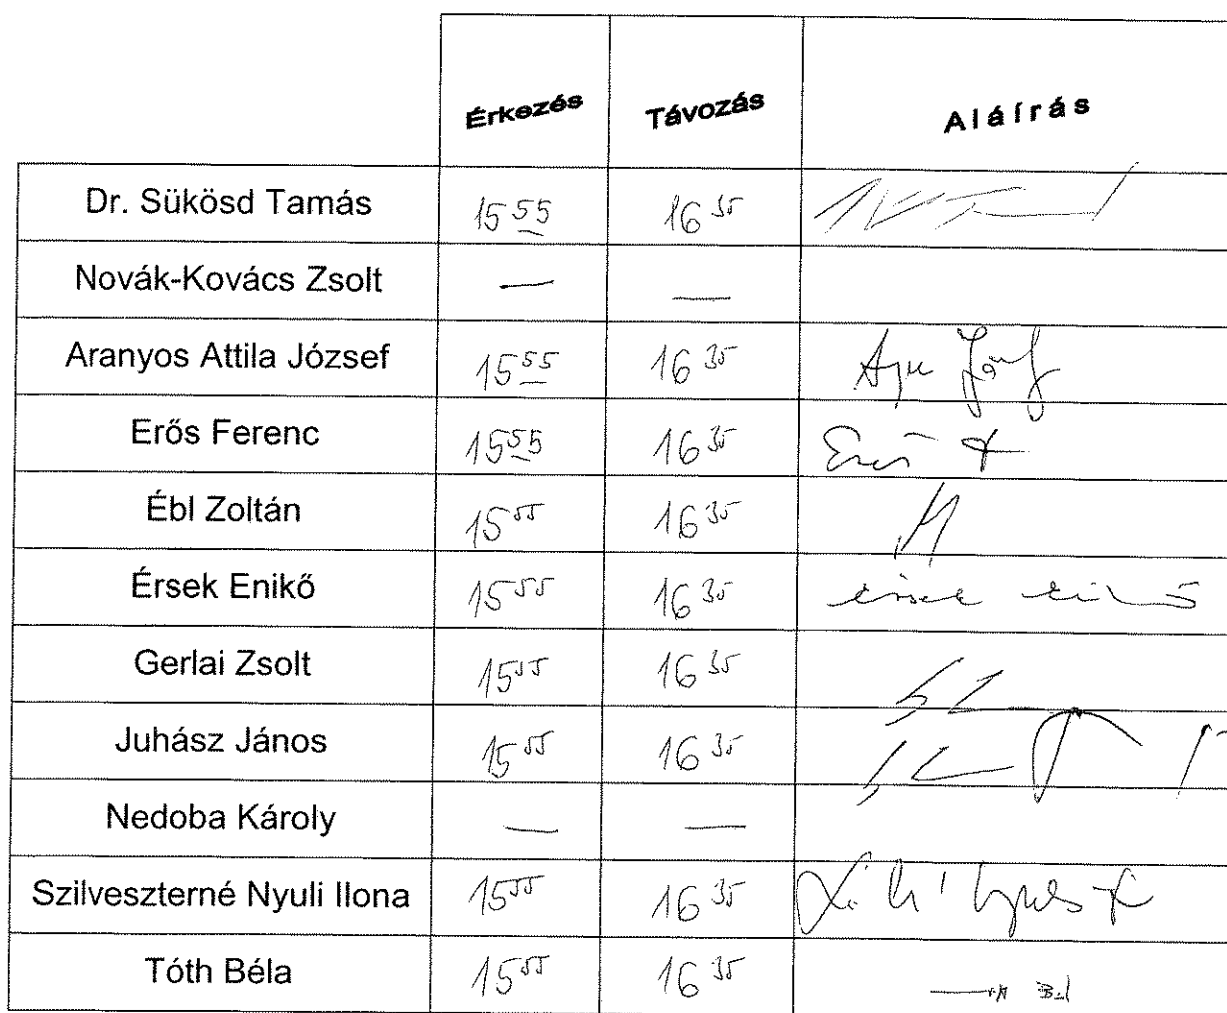 Érkezés Távozás Aláírás
Dr. Sükösd Tamás 15 55 16 35
Novák-Kovács Zsolt — —
Aranyos Attila József 15 55 16 35
Erős Ferenc 15 55 16 35 Erős F
Ébl Zoltán 15 55 16 35
Érsek Enikő 15 55 16 35 Érsek Enikő
Gerlai Zsolt 15 55 16 35
Juhász János 15 55 16 35
Nedoba Károly — —
Szilveszterné Nyuli Ilona 15 55 16 35
Tóth Béla 15 55 16 35